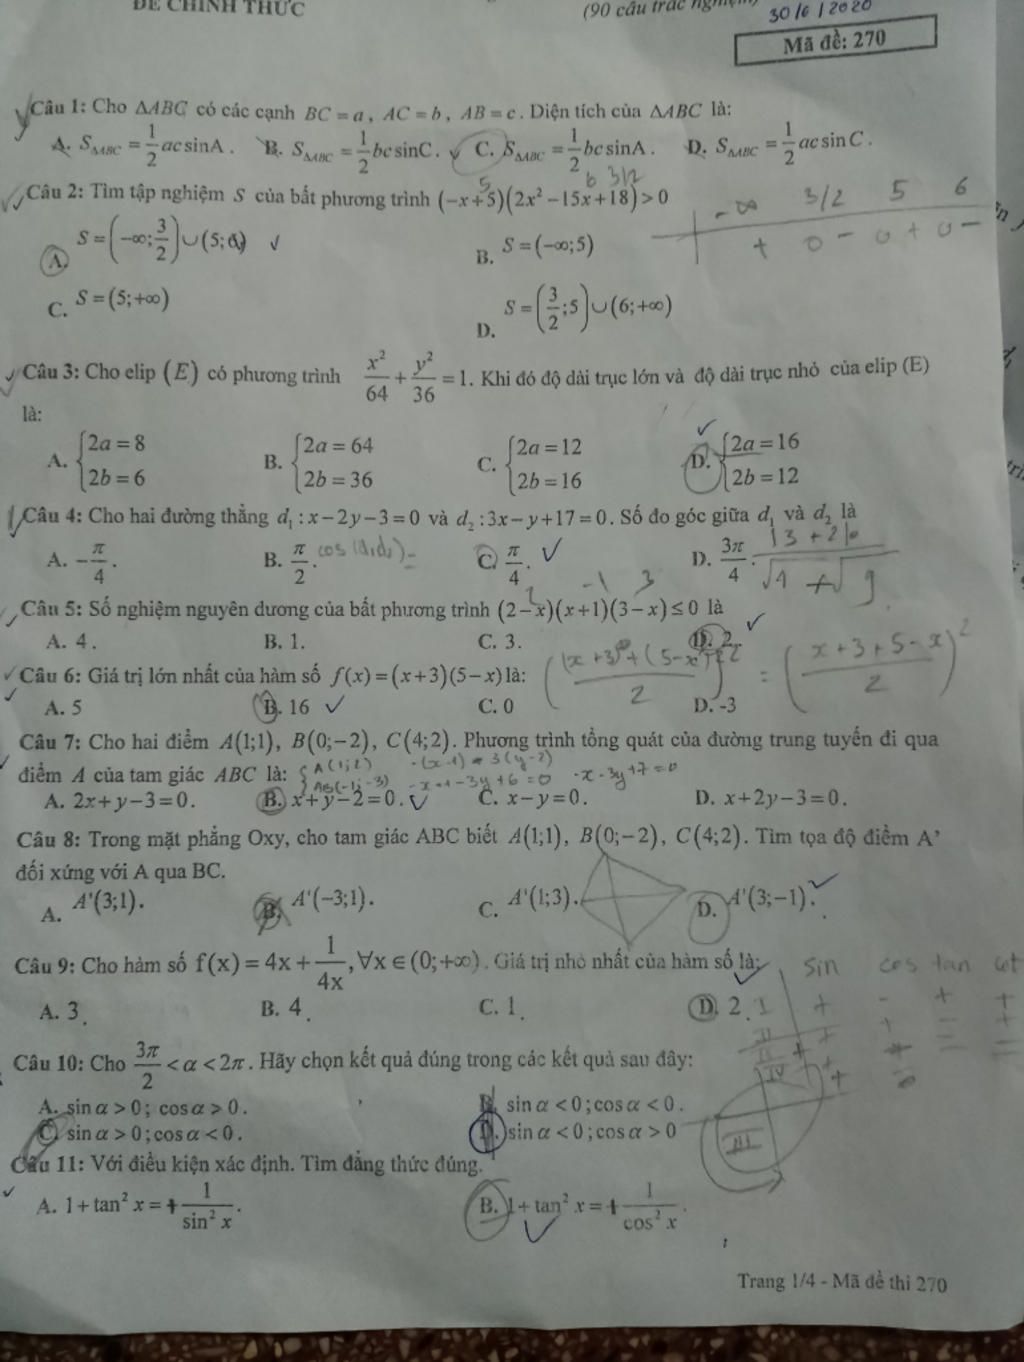 ĐỀ CHÍNH THỨC
(90 câu trắc nghiệm)
30/6/2020
Mã đề: 270
Câu 1: Cho ΔABC có các cạnh BC = a, AC = b, AB = c. Diện tích của ΔABC là:
A. S_ΔABC = 1/2 ac sin A. B. S_ΔABC = 1/2 bc sin C. C. S_ΔABC = 1/2 bc sin A. D. S_ΔABC = 1/2 ac sin C.
5 6 3/2
Câu 2: Tìm tập nghiệm S của bất phương trình (-x+5)(2x² -15x+18) > 0
-∞ 3/2 5 6
+ 0 - 0 + 0 -
A. S = (-∞; 3/2) ∪ (5;6) B. S = (-∞;5)
C. S = (5;+∞) D. S = (3/2;5) ∪ (6;+∞)
Câu 3: Cho elip (E) có phương trình x²/64 + y²/36 = 1. Khi đó độ dài trục lớn và độ dài trục nhỏ của elip (E)
là:
A. {2a = 8 2b = 6 B. {2a = 64 2b = 36 C. {2a = 12 2b = 16 D. {2a = 16 2b = 12
Câu 4: Cho hai đường thẳng d₁ : x-2y-3=0 và d₂ : 3x-y+17=0. Số đo góc giữa d₁ và d₂ là
A. -π/4. B. π/2. cos(d₁d₂) = C. π/4. D. 3π/4. |3+2|
2 -1 3
Câu 5: Số nghiệm nguyên dương của bất phương trình (2-x)(x+1)(3-x) ≤ 0 là
A. 4. B. 1. C. 3. D. 2.
Câu 6: Giá trị lớn nhất của hàm số f(x) = (x+3)(5-x) là:
= ((x+3+5-x)/2)²
A. 5 B. 16 C. 0 D. -3
Câu 7: Cho hai điểm A(1;1), B(0;-2), C(4;2). Phương trình tổng quát của đường trung tuyến đi qua
điểm A của tam giác ABC là:
A. 2x+y-3=0. B. x+y-2=0. C. x-y=0. D. x+2y-3=0.
Câu 8: Trong mặt phẳng Oxy, cho tam giác ABC biết A(1;1), B(0;-2), C(4;2). Tìm tọa độ điểm A'
đối xứng với A qua BC.
A. A'(3;1). B. A'(-3;1). C. A'(1;3). D. A'(3;-1).
Câu 9: Cho hàm số f(x) = 4x + 1/4x, ∀x ∈ (0;+∞). Giá trị nhỏ nhất của hàm số là:
sin cos tan cot
A. 3. B. 4. C. 1. D. 2.
Câu 10: Cho 3π/2 < α < 2π. Hãy chọn kết quả đúng trong các kết quả sau đây:
A. sin α > 0; cos α > 0. B. sin α < 0; cos α < 0.
C. sin α > 0; cos α < 0. D. sin α < 0; cos α > 0
Câu 11: Với điều kiện xác định. Tìm đẳng thức đúng.
A. 1+ tan² x = + 1/sin² x. B. 1+ tan² x = + 1/cos² x.
Trang 1/4 - Mã đề thi 270